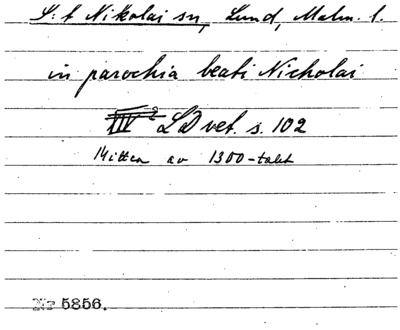 S:t Nikolai sn, Lund, Malm. l.
in parochia beati Nicholai
LD vet. s. 102
Mitten av 1300-talet
No 5856.